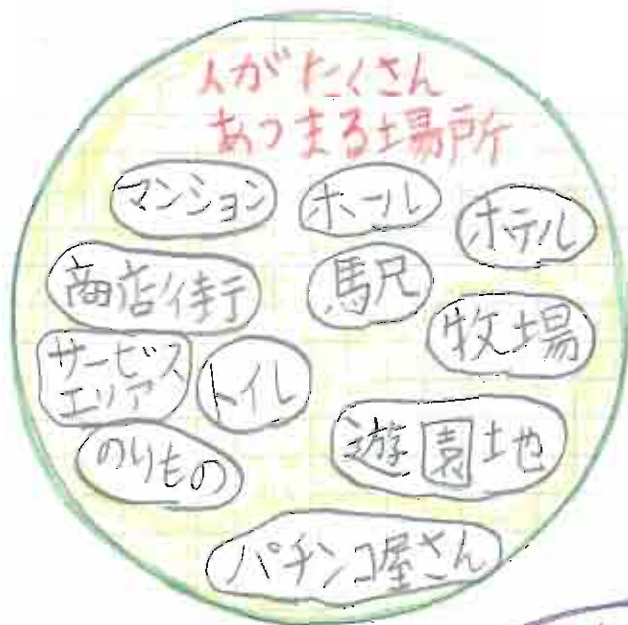 人がたくさん
あつまる場所
マンション
ホール
ホテル
商店街
駅
牧場
サービス
エリア
トイレ
のりもの
遊園地
パチンコ屋さん